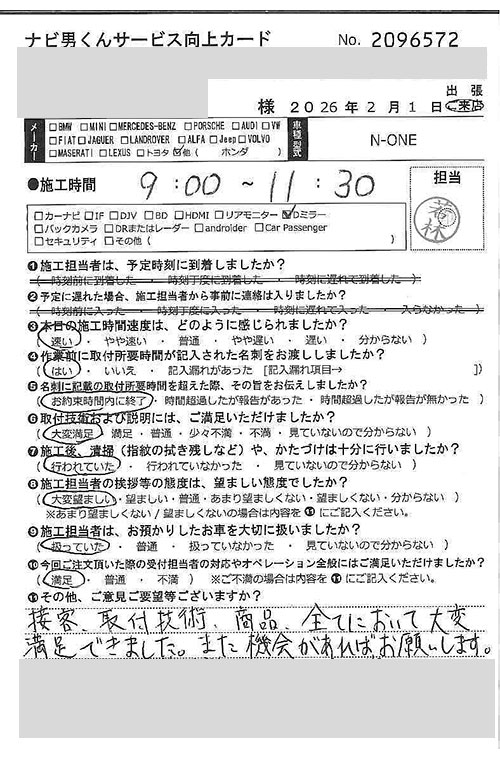 ナビ男くんサービス向上カード No. 2096572
様 2026年2月1日 出張 ご来店
メーカー □BMW □MINI □MERCEDES-BENZ □PORSCHE □AUDI □VW
□FIAT □JAGUER □LANDROVER □ALFA □Jeep □VOLVO
□MASERATI □LEXUS □トヨタ ☑他（ ホンダ ）
車種型式 N-ONE
●施工時間 9:00～11:30
担当
若林
□カーナビ □IF □DJV □BD □HDMI □リアモニター ☑Dミラー
□バックカメラ □DRまたはレーダー □androider □Car Passenger
□セキュリティ □その他（ ）
❶施工担当者は、予定時刻に到着しましたか？
（ 時刻前に到着した ・ 時刻丁度に到着した ・ 時刻に遅れて到着した ）
❷予定に遅れた場合、施工担当者から事前に連絡は入りましたか？
（ 時刻前に入った ・ 時刻丁度に入った ・ 時刻に遅れて入った ・ 入らなかった ）
❸本日の施工時間速度は、どのように感じられましたか？
（ 速い ・ やや速い ・ 普通 ・ やや遅い ・ 遅い ・ 分からない ）
❹作業前に取付所要時間が記入された名刺をお渡ししましたか？
（ はい ・ いいえ ・ 記入漏れがあった [記入漏れ項目→ ]）
❺名刺に記載の取付所要時間を超えた際、その旨をお伝えしましたか？
（ お約束時間内に終了 ・ 時間超過したが報告があった ・ 時間超過したが報告が無かった ）
❻取付技術および説明には、ご満足いただけましたか？
（ 大変満足 ・ 満足 ・ 普通 ・ 少々不満 ・ 不満 ・ 見ていないので分からない ）
❼施工後、清掃（指紋の拭き残しなど）や、かたづけは十分に行いましたか？
（ 行われていた ・ 行われていなかった ・ 見ていないので分からない ）
❽施工担当者の挨拶等の態度は、望ましい態度でしたか？
（ 大変望ましい ・ 望ましい ・ 普通 ・ あまり望ましくない ・ 望ましくない ・ 分からない ）
※あまり望ましくない / 望ましくないの場合は内容を⓫にご記入ください。
❾施工担当者は、お預かりしたお車を大切に扱いましたか？
（ 扱っていた ・ 普通 ・ 扱っていなかった ・ 見ていないので分からない ）
❿今回ご注文頂いた際の受付担当者の対応やオペレーション全般にはご満足いただけましたか？
（ 満足 ・ 普通 ・ 不満 ） ※ご不満の場合は内容を⓫にご記入ください。
⓫その他、ご意見ご要望等ございますか？
接客、取付技術、商品、全てにおいて大変
満足できました。また機会があればお願いします。